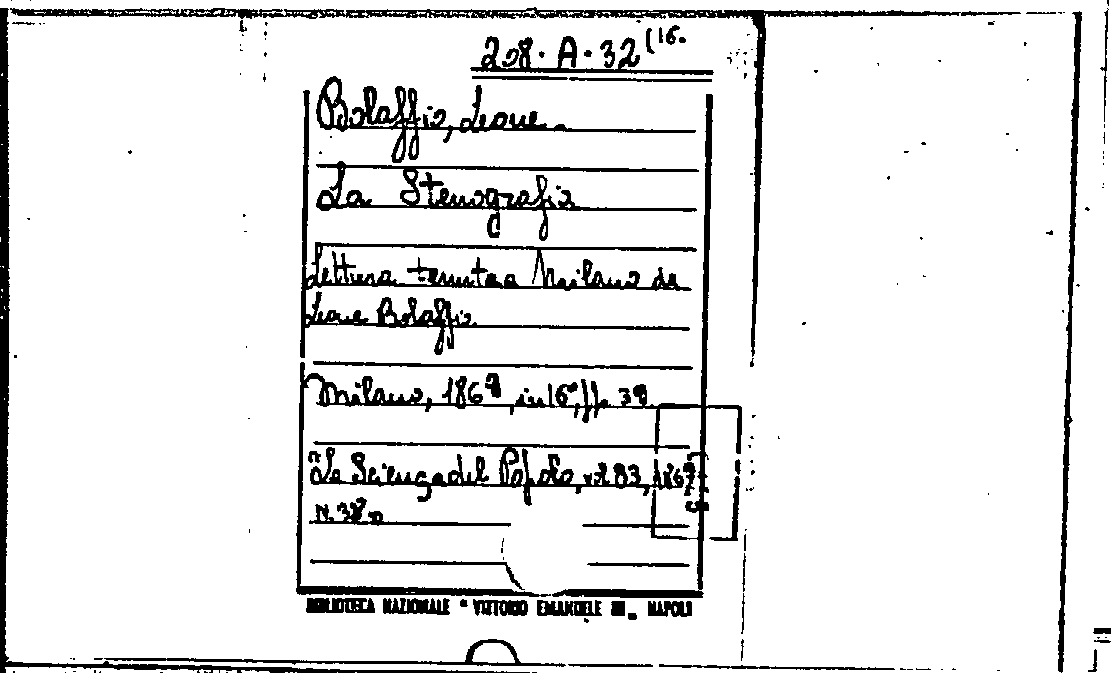 208·A·32 (16.
Bolaffio, Leone.
La Stenografia
Lettura tenuta a Milano da
Leone Bolaffio
Milano, 1869, in 16°, pp. 39
"La Scienza del Popolo, vol 83, 1869,
N. 38
BIBLIOTECA NAZIONALE "VITTORIO EMANUELE III„ NAPOLI